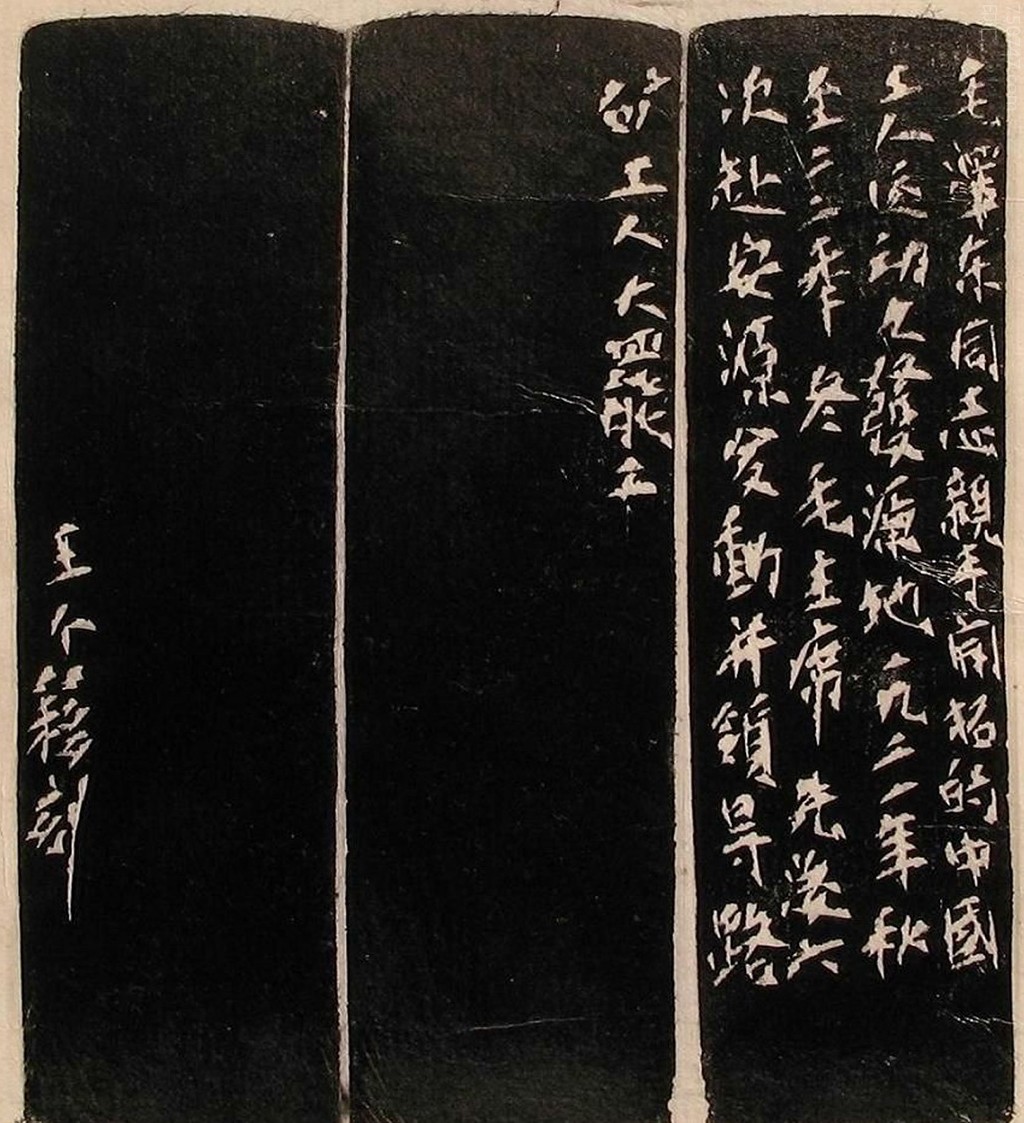 毛澤东同志親手開拓的中國
工人运动之發源地一九二一年秋
至二三年冬毛主席先後六
次赴安源发動并領导路
矿工人大罷工
王个簃刻